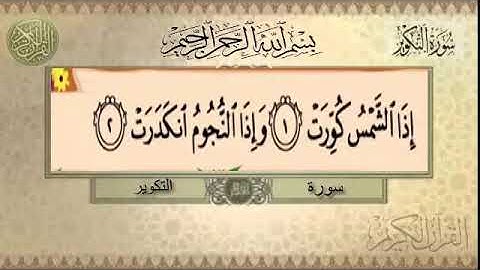 سورة التكوير
بِسْمِ ٱللَّهِ ٱلرَّحْمَٰنِ ٱلرَّحِيمِ
القرآن الكريم
إِذَا ٱلشَّمْسُ كُوِّرَتْ ١ وَإِذَا ٱلنُّجُومُ ٱنكَدَرَتْ ٢
سورة التكوير
القرآن الكريم